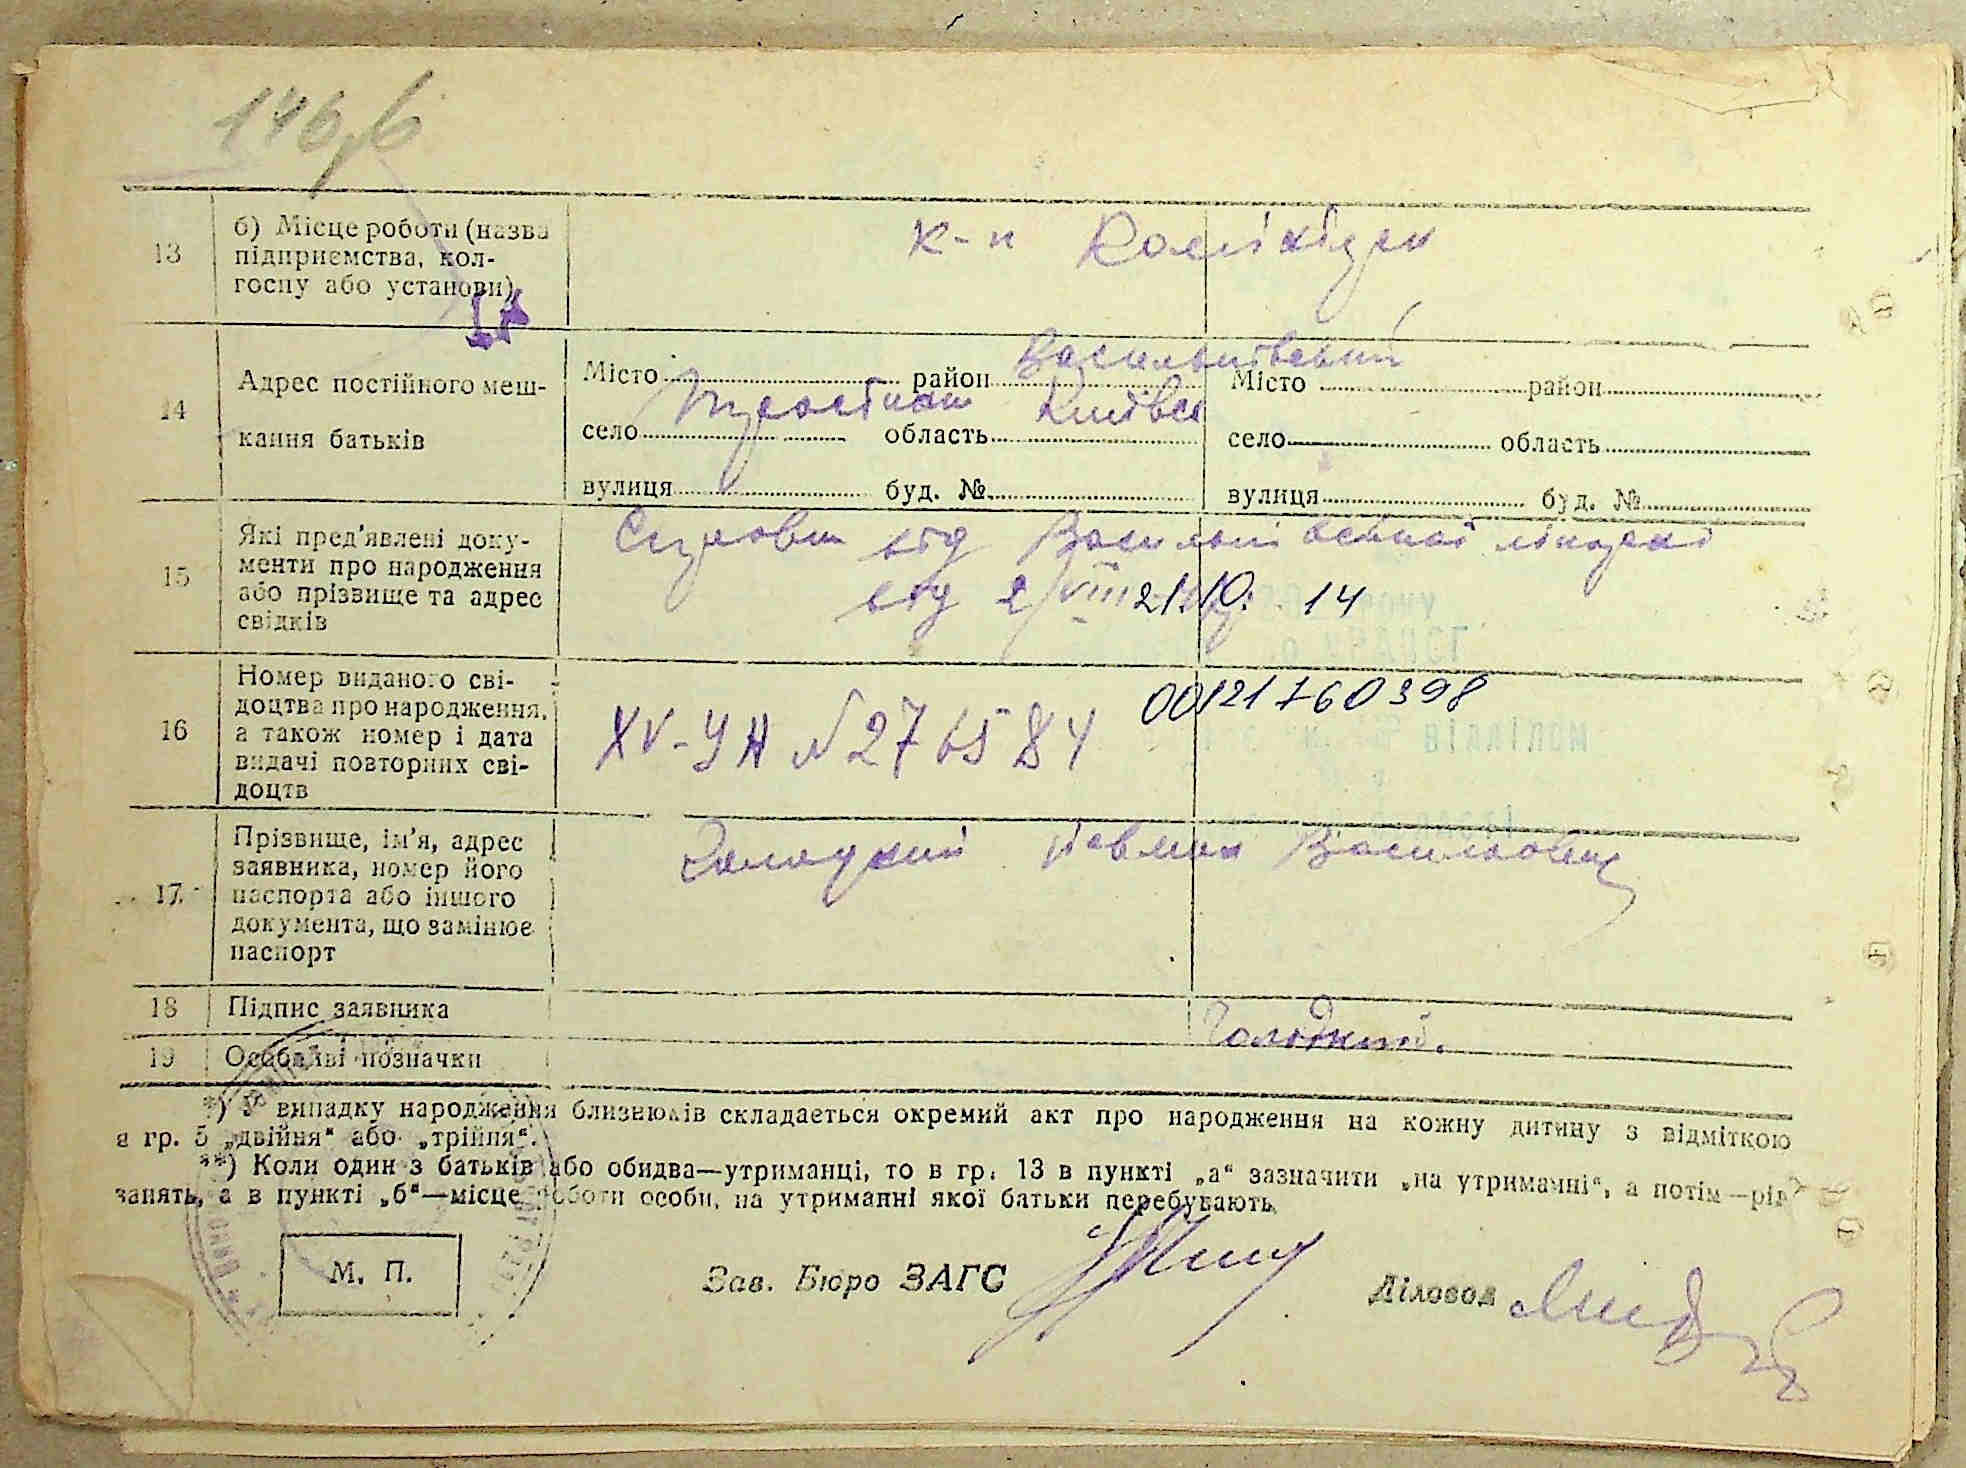 146
13 б) Місце роботи (назва
підприємства, кол-
госпу або установи)
к-п
14 Адрес постійного меш-
кання батьків
Місто район Васильківський
село область Київськ
вулиця буд. №
Місто район
село область
вулиця буд. №
15 Які пред'явлені доку-
менти про народження
або прізвище та адрес
свідків
від лікарні
від VIII 21.10. 14
16 Номер виданого сві-
доцтва про народження,
а також номер і дата
видачі повторних сві-
доцтв
XV-УН №276584
00121760398
17 Прізвище, ім'я, адрес
заявника, номер його
паспорта або іншого
документа, що замінює
паспорт
Васильович
18 Підпис заявника
Голодкий.
19 Особливі позначки
*) У випадку народження близнюків складається окремий акт про народження на кожну дитину з відміткою
в гр. 5 „двійня" або „трійня".
**) Коли один з батьків або обидва—утриманці, то в гр. 13 в пункті „а" зазначити „на утриманні", а потім—рід
занять, а в пункті „б"—місце роботи особи, на утриманні якої батьки перебувають
М. П.
Зав. Бюро ЗАГС
Діловод